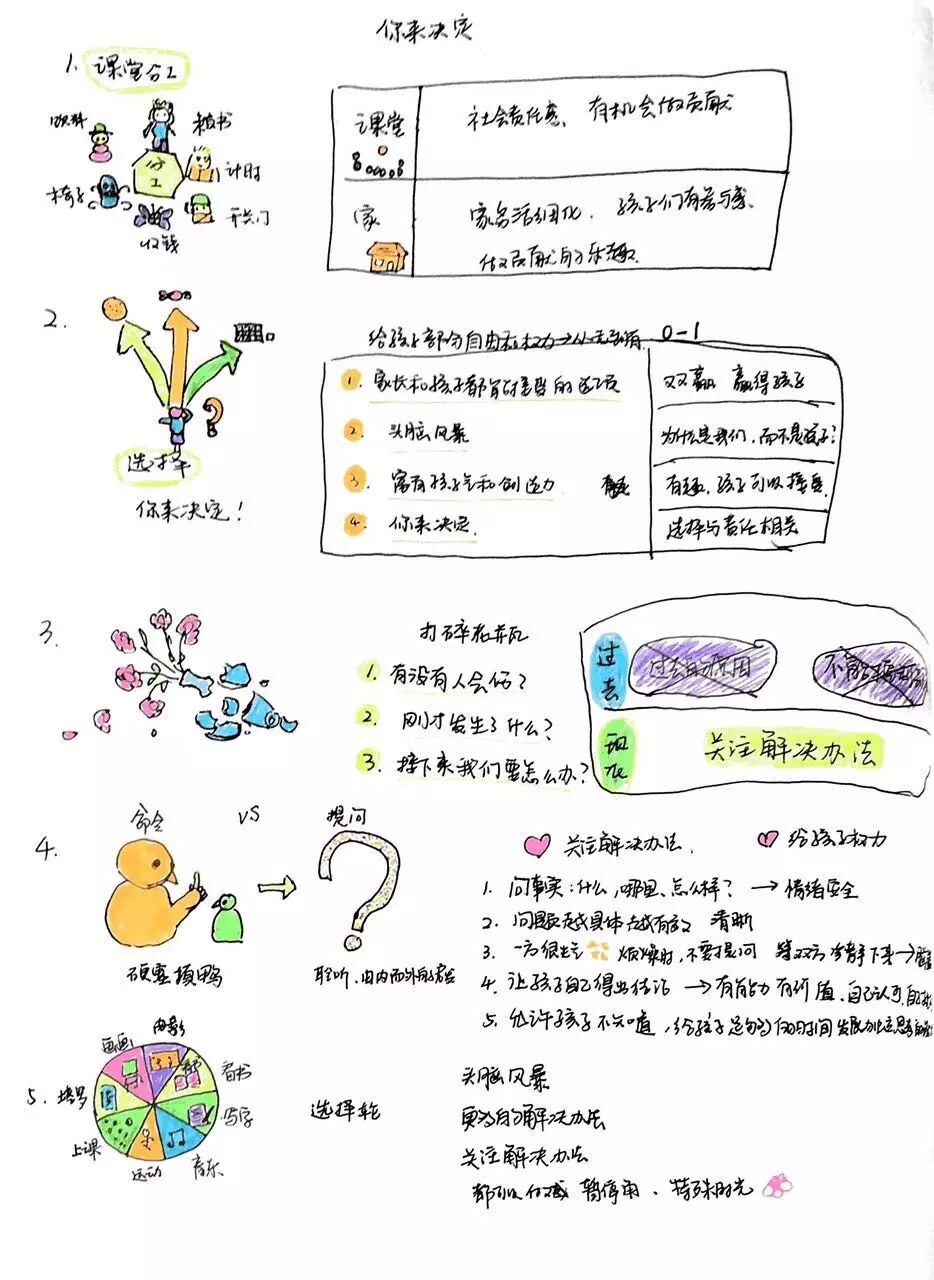 你来决定
1. 课堂分工
饮料
板书
椅子
分工
计时
收钱
开关门
课堂 社会责任感、有机会做贡献
家 家务活细化、孩子们有参与感、
做贡献的乐趣.
2.
选择
你来决定!
给孩子部分自由和权力→从无到有 0-1
1. 家长和孩子都能接受的选项 双赢 赢得孩子
2. 头脑风暴 为什么是我们,而不是孩子?
3. 富有孩子气和创造力 有趣,孩子可以接受.
4. 你来决定. 选择与责任相关
3.
打碎花瓶
1. 有没有人会伤?
2. 刚才发生了什么?
3. 接下来我们要怎么办?
过去 过去的原因
现在 关注解决办法
4.
命令 VS 提问
硬塞填鸭
聆听、由内而外
关注解决办法. 给孩子权力
1. 问事实:什么,哪里、怎么样? → 情绪安全
2. 问题越具体越有效 清晰
3. 一方很生气 烦燥时,不要提问 等双方冷静下来→
4. 让孩子自己得出结论 → 有能力有价值,自己认可,
5. 允许孩子不知道,给孩子足够的时间
5.
电影
画画
看书
写字
音乐
运动
上课
选择轮
头脑风暴
更多的解决办法
关注解决办法
都可以 暂停角、特殊时光